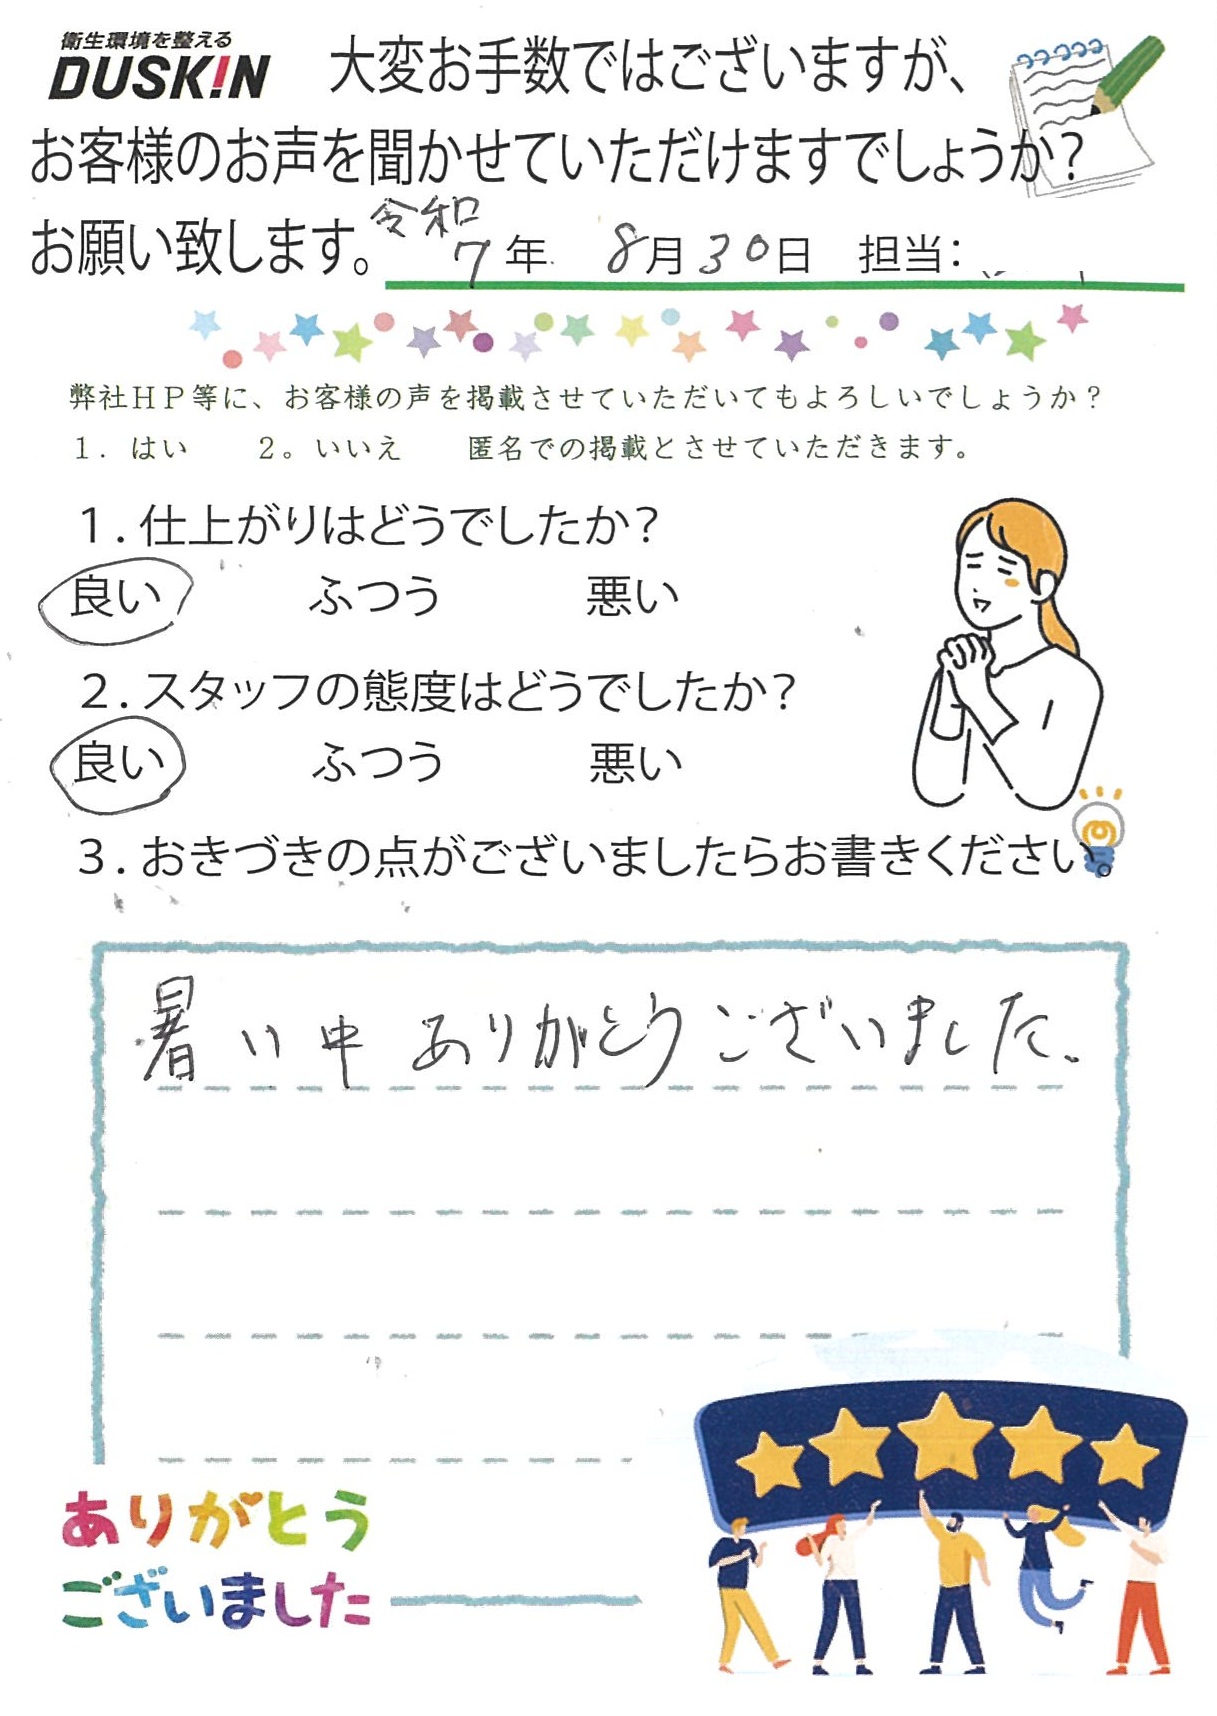 衛生環境を整える
DUSKIN
大変お手数ではございますが、
お客様のお声を聞かせていただけますでしょうか？
お願い致します。
令和
7年 8月30日 担当：
弊社ＨＰ等に、お客様の声を掲載させていただいてもよろしいでしょうか？
１．はい ２。いいえ 匿名での掲載とさせていただきます。
１．仕上がりはどうでしたか？
良い ふつう 悪い
２．スタッフの態度はどうでしたか？
良い ふつう 悪い
３．おきづきの点がございましたらお書きください。
暑い中 ありがとうございました。
ありがとう
ございました